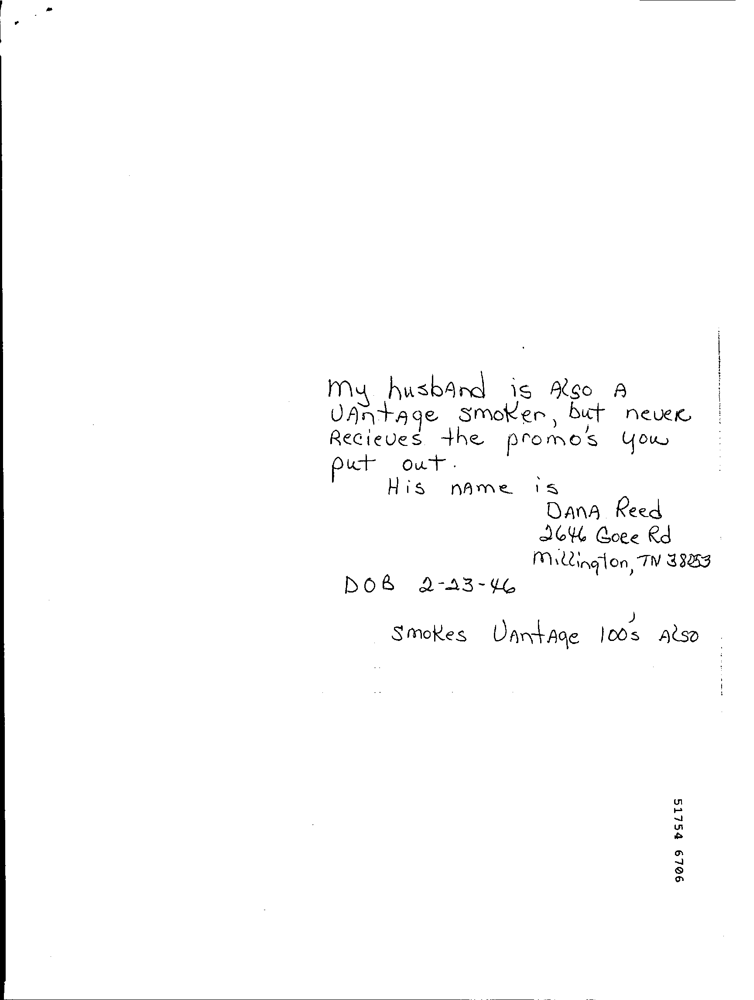 my husbAnd is Also A
VAntAge smoker, but never
Recieves the promo's you
put out.
His nAme is
DANA Reed
2646 Goee Rd
Millington, TN 38053
DOB 2-23-46
Smokes VAntAge 100's Also
51754 6706